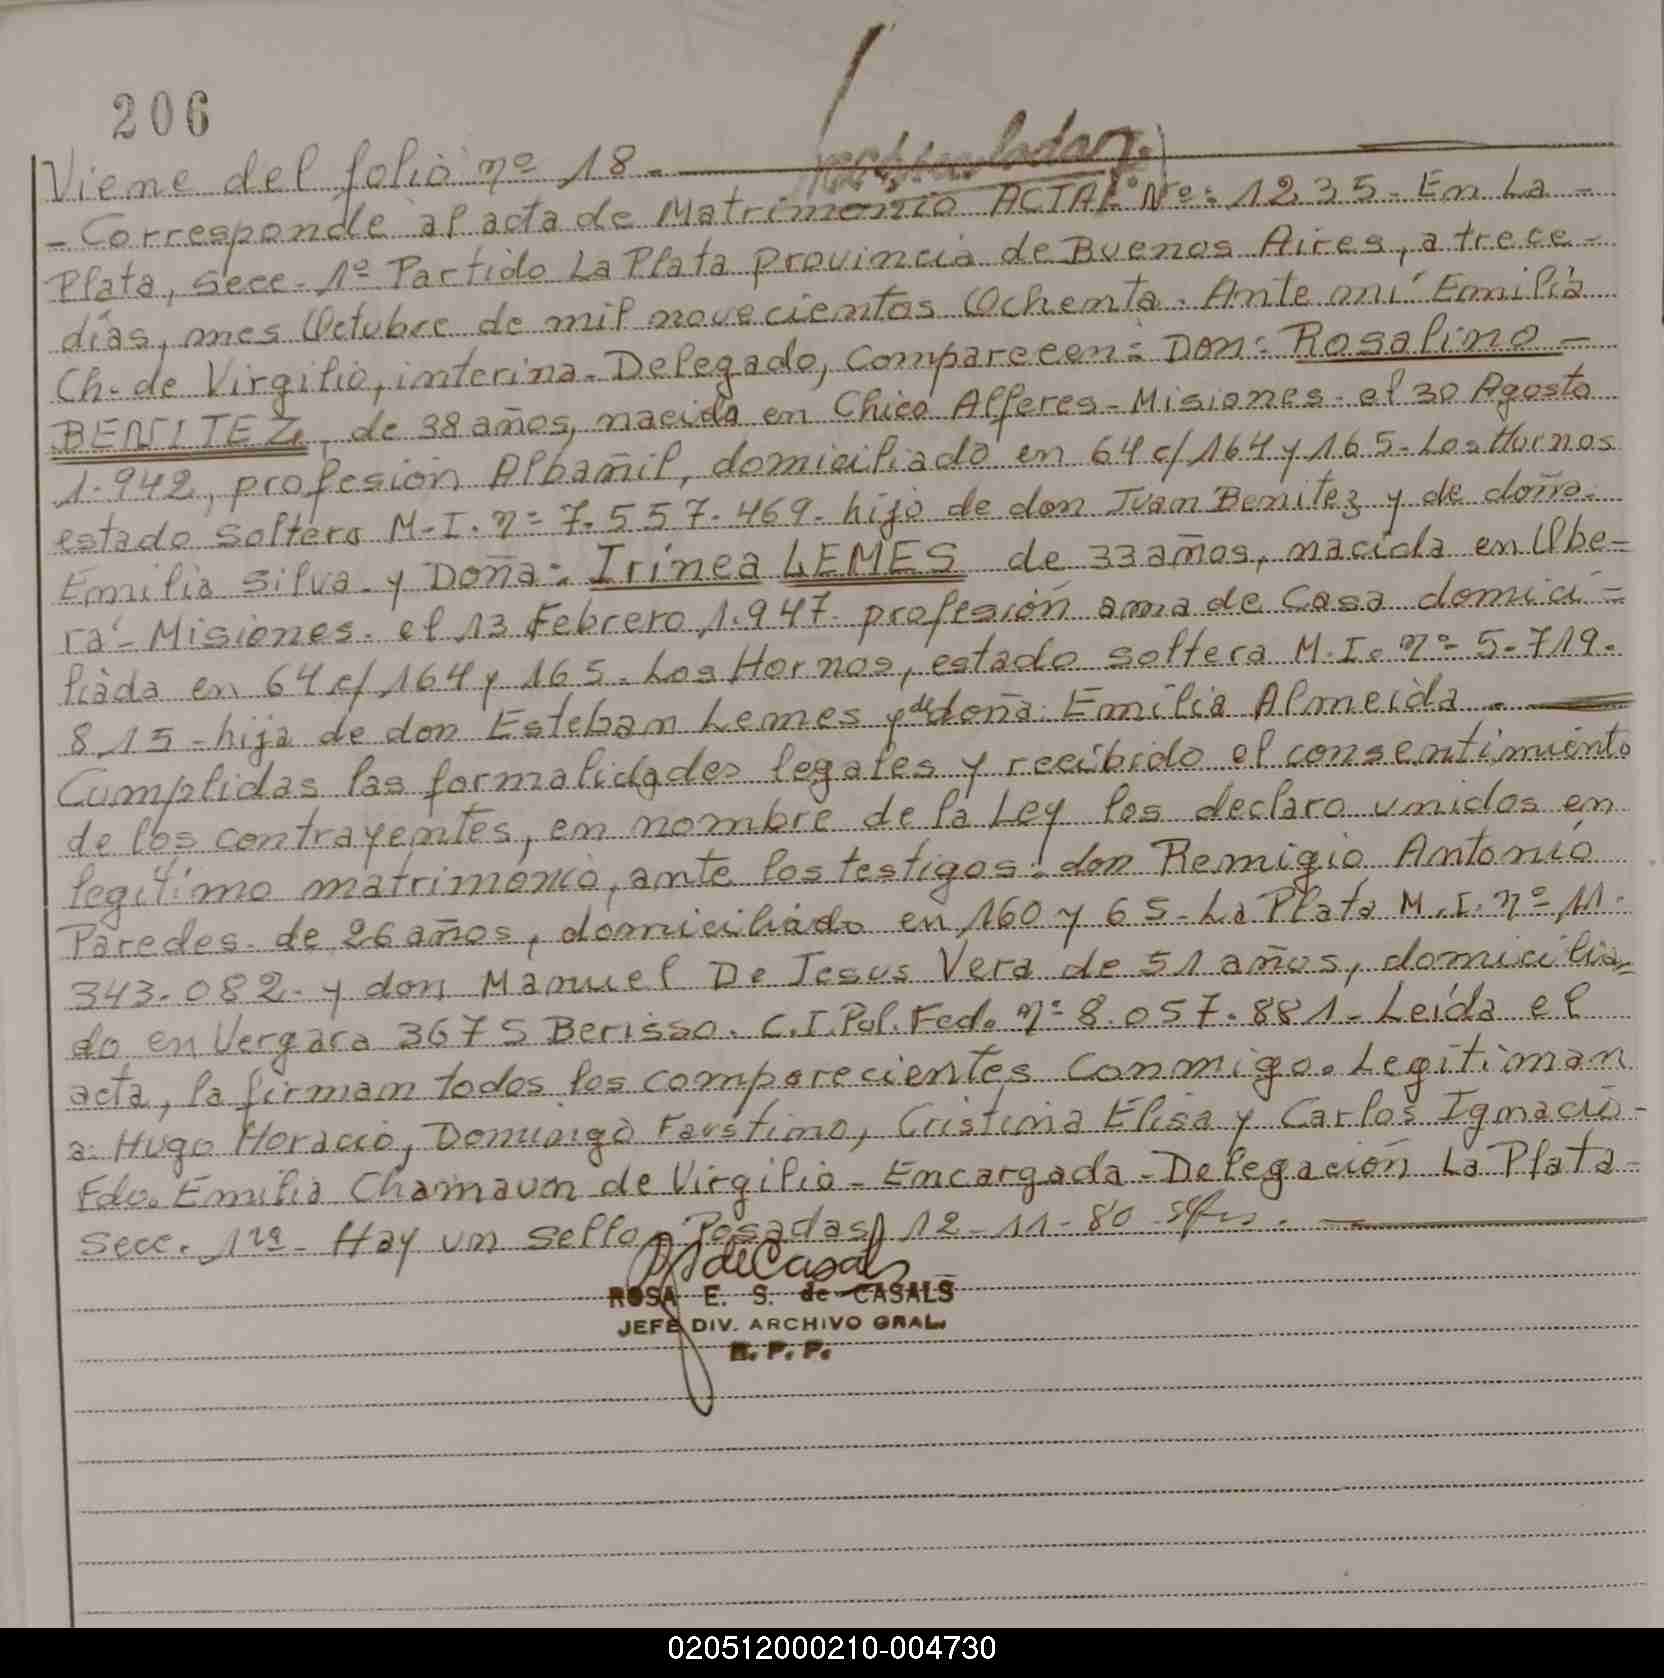 206
Viene del folio nº 18.
- Corresponde al acta de Matrimonio ACTA Nº: 1235- En La -
Plata, Secc. 1º Partido La Plata provincia de Buenos Aires, a trece -
días, mes Octubre de mil novecientos Ochenta. Ante mí Emilia
Ch. de Virgilio, interina. Delegado, Comparecen: Don: Rosalino -
BENITEZ, de 38 años, nacido en Chico Alferes - Misiones - el 30 Agosto
1.942, profesión Albañil, domiciliado en 64 c/ 164 y 165- Los Hornos
estado soltero M.I. nº 7.557.469- hijo de don Juan Benitez y de doña
Emilia Silva. y Doña: Irinea LEMES de 33 años, nacida en Obe-
rá - Misiones. el 13 Febrero 1.947. profesión ama de Casa domici-
liada en 64 c/ 164 y 165. Los Hornos, estado soltera M.I. nº 5.719.
815 - hija de don Esteban Lemes y de doña: Emilia Almeida.
Cumplidas las formalidades legales y recibido el consentimiento
de los contrayentes, en nombre de la Ley los declaro unidos en
legítimo matrimonio, ante los testigos: don Remigio Antonio
Paredes. de 26 años, domiciliado en 160 y 65- La Plata M.I. nº 11.
343.082. y don Manuel De Jesus Vera de 51 años, domicilia-
do en Vergara 3675 Berisso. C.I. Pol. Fed. nº 8.057.881- Leída el
acta, la firman todos los comparecientes Conmigo. Legitiman
a: Hugo Horacio, Domingo Faustino, Cristina Elisa y Carlos Ignacio -
Fdo. Emilia Chamaun de Virgilio - Encargada - Delegación La Plata -
Secc. 1ra - Hay un sello. Posadas, 12-11-80
de Casals
ROSA E. S. de CASALS
JEFE DIV. ARCHIVO GRAL.
R. P. P.
020512000210-004730